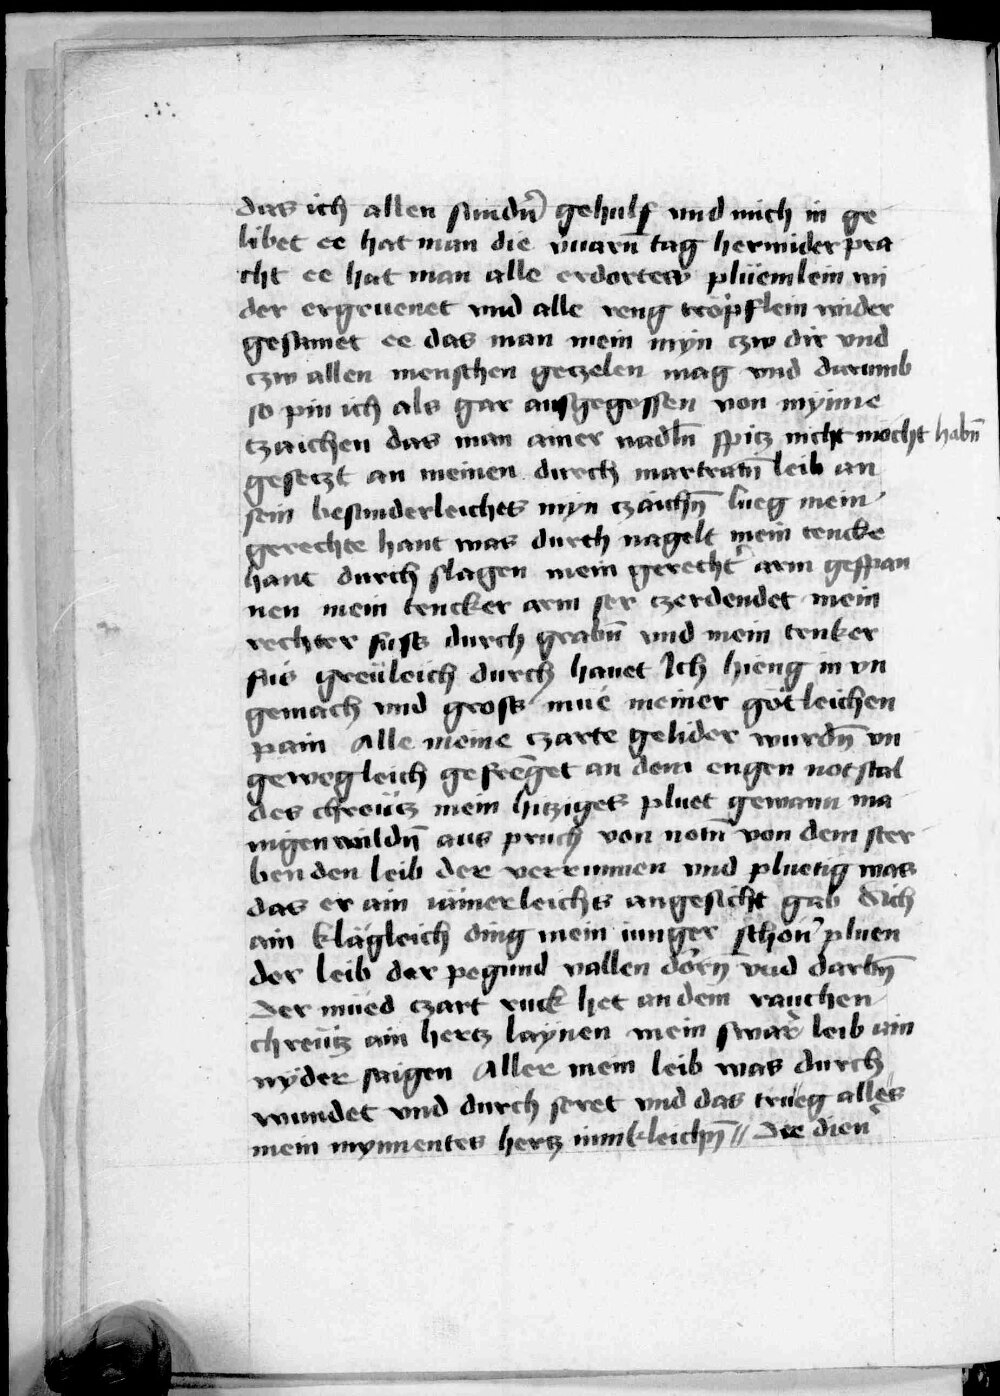 das ich allen sundn̄ gehulf vnd mich in ge
libet ee hat man die vuarn̄ tag herwider pra
cht ee hat man alle erdorten plüemlein wi
der ergeuenet vnd alle reng tröpflein wider
gesamet ee das man mein myn czw dir vnd
czw allen menschen geczelen mag vnd darumb
so pin ich als gar ausgegossen von mynne
tzaichen das man ainer nadln̄ spitz nicht mocht habn̄
gesetzt an meinen durch martratn̄ leib an
sein besunderleiches myn czaichn̄ lueg mein
gerechte hant was durch nagelt mein tencke
hant durch slagen mein gerecht' arm gespan
nen mein tencker arm ser czerdendet mein
rechter fuss durch grabn̄ vnd mein tenker
fus greuleich durch hauet Ich hieng in vn
gemach vnd gross mue meiner götleichen
pain Alle meine czarte gelider wurdn̄ vn
gewegleich gefrēget an dem engen notstal
des chreutz mein hitziges pluet gewann ma
nigen wildn̄ aus pruch von notn̄ von dem ster
ben den leib der verrunnen vnd pluetig was
das er ain iämerleichs angesicht gab Sich
ain klägleich ding mein iunger schon' pluen
der leib der pegund vallen dorn̄ vnd darbn̄
Der mued czart ruck het an dem rauchen
chreutz ain hertz laynen mein swar' leib ain
nyder saigen Aller mein leib was durch
wundet vnd durch seret vnd das trueg alles
mein mynnentes hertz innikleichn̄ // Die dien'